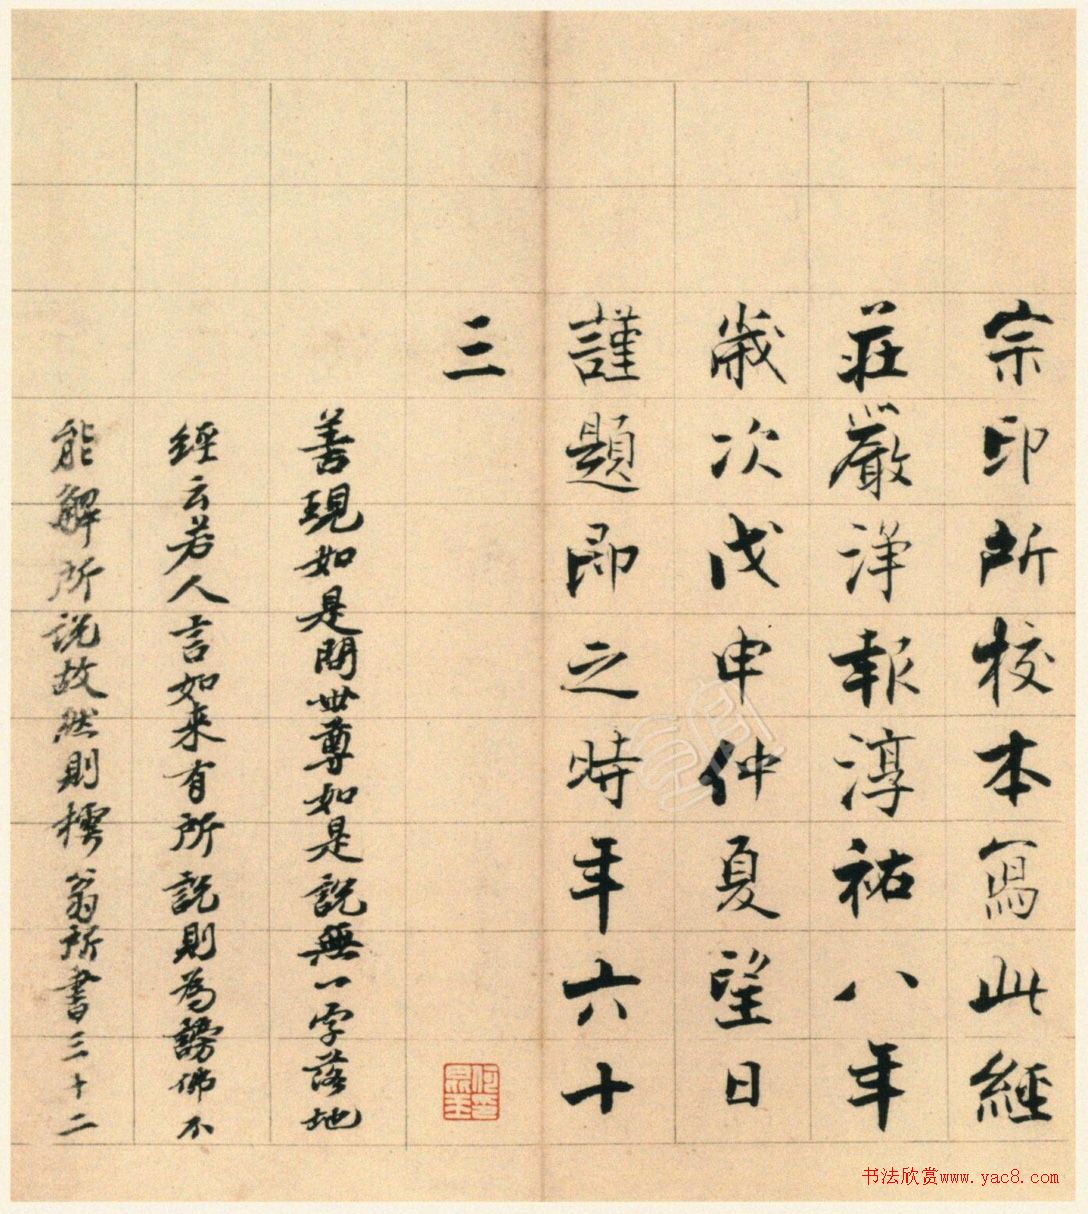 宗印所校本寫此經
莊嚴淨報淳祐八年
歲次戊申仲夏望日
謹題即之時年六十
三
善現如是問世尊如是說無一字落地
經云若人言如來有所說則為謗佛不
能解所說故然則樗翁所書三十二
书法欣赏www.yac8.com